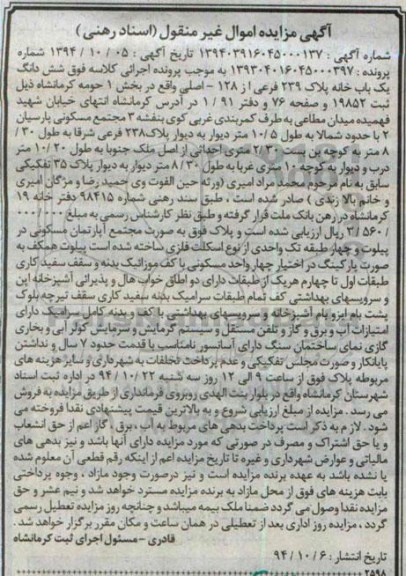 آگهی مزایده اموال غیر منقول (اسناد رهنی)
شماره آگهی : ۱۳۹۴۰۳۹۱۶۰۴۵۰۰۰۱۳۷ تاریخ آگهی : ۰۵ / ۱۰ / ۱۳۹۴ شماره
پرونده : ۱۳۹۳۰۴۰۱۶۰۴۵۰۰۰۳۹۷ به موجب پرونده اجرائی کلاسه فوق شش دانگ
یک باب خانه پلاک ۲۳۹ فرعی از ۱۲۸ - اصلی واقع در بخش ۱ حومه کرمانشاه ذیل
ثبت ۱۹۸۵۲ و صفحه ۷۶ و دفتر ۹۱ / ۱ در آدرس کرمانشاه انتهای خیابان شهید
فهمیده میدان مطاعی به طرف کمربندی غربی کوی بنفشه ۳ مجتمع مسکونی پارسیان
۲ با حدود شمالا به طول ۱۰/۵ متر دیوار به دیوار پلاک۲۳۸ فرعی شرقا به طول ۳۰ /
۸ متر به کوچه بن بست ۲/۳۰ متری احداثی از اصل ملک جنوبا به طول ۱۰/۲۰ متر
درب و دیوار به کوچه متری غربا به طول ۳۰ / ۸ متر دیوار به دیوار پلاک ۳۵ تفکیکی
سابق به نام مرحوم محمد مراد امیری (ورثه حین الفوت وی حمید رضا و مژگان امیری
و خانم بالا زندی ) صادر شده است ، طبق سند رهنی شماره ۹۸۴۱۵ دفتر خانه ۱۹
کرمانشاه در رهن بانک ملت قرار گرفته و طبق نظر کارشناس رسمی به مبلغ
/ ۵۶۰ / ۳ ریال ارزیابی شده است و پلاک فوق به صورت مجتمع آپارتمان مسکونی در
پیلوت و چهار طبقه تک واحدی از نوع اسکلت فلزی ساخته شده است پیلوت همکف به
صورت پارکینگ در اختیار چهار واحد مسکونی با کف موزائیک بدنه و سقف سفید کاری
طبقات اول تا چهارم هر یک از طبقات دارای دو اطاق خواب هال و پذیرائی آشپزخانه اپن
و سرویسهای بهداشتی کف تمام طبقات سرامیک بدنه سفید کاری سقف تیرچه بلوک
پشت بام ایزو پام آشپزخانه و سرویسهای بهداشتی با کف و بدنه کامل سرامیک دارای
امتیازات آب و برق و گاز و تلفن مستقل و سیستم گرمایش و سرمایش کولر آبی و بخاری
گازی نمای ساختمان سنگ دارای آسانسور نامناسب با قدمت حدود ۷ سال و نداشتن
پایانکار و صورت مجلس تفکیکی و عدم پرداخت تخلفات به شهرداری و سایر هزینه های
مربوطه پلاک فوق از ساعت ۹ الی ۱۲ روز سه شنبه ۲۲ / ۱۰ / ۹۴ در اداره ثبت اسناد
شهرستان کرمانشاه واقع در بلوار بنت الهدی روبروی فرمانداری از طریق مزایده به فروش
می رسد . مزایده از مبلغ ارزیابی شروع و به بالاترین قیمت پیشنهادی نقدا فروخته می
شود . لازم به ذکر است پرداخت بدهی های مربوط به آب ،برق ، گاز اعم از حق انشعاب
و یا حق اشتراک و مصرف در صورتی که مورد مزایده دارای آنها باشد و نیز بدهی های
مالیاتی و عوارض شهرداری و غیره تا تاریخ مزایده اعم از اینکه رقم قطعی آن معلوم شده
یا نشده باشد به عهده برنده مزایده است و نیز درصورت وجود مازاد ، وجوه پرداختی
بابت هزینه های فوق از محل مازاد به برنده مزایده مسترد خواهد شد و نیم عشر و حق
مزایده نقدا وصول می گردد ضمنا ملک بیمه میباشد و چنانچه روز مزایده تعطیل رسمی
گردد ، مزایده روز اداری بعد از تعطیلی در همان ساعت و مکان مقرر برگزار خواهد شد .
قادری - مسئول اجرای ثبت کرمانشاه
تاریخ انتشار : ۶ / ۱۰ / ۹۴
۲۵۹۸